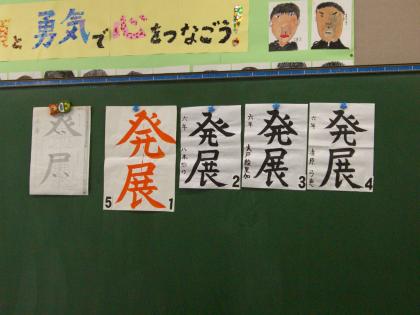 と勇気で心をつなごう!
発展
発展
5
1
六年
発展
2
六年
発展
3
六年
発展
4